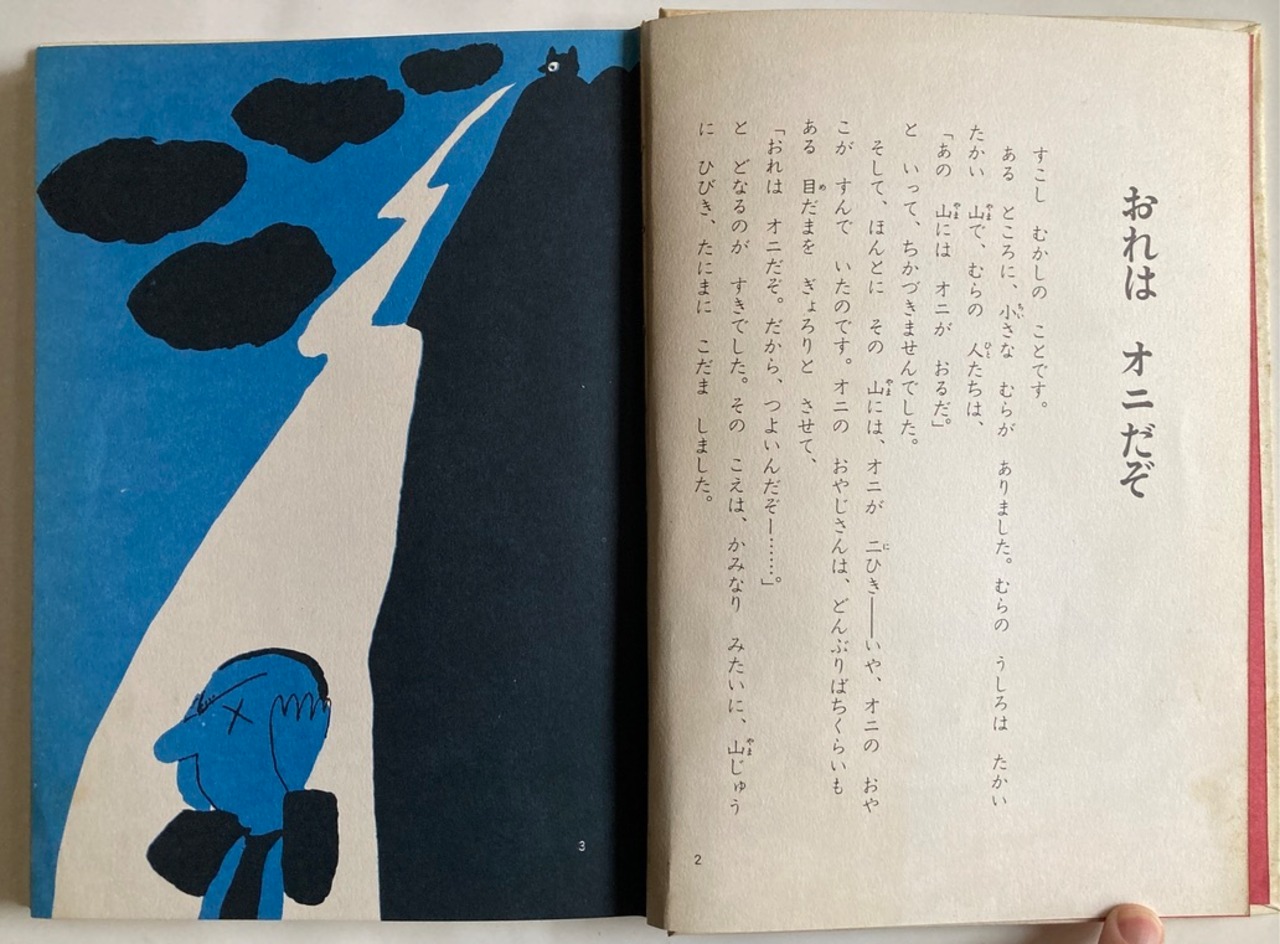 おれは オニだぞ
すこし むかしの ことです。
ある ところに、小さな むらが ありました。むらの うしろは たかい
たかい 山で、むらの 人たちは、
「あの 山には オニが おるだ。」
と いって、ちかづきませんでした。
そして、ほんとに その 山には、オニが 二ひき――いや、オニの おや
こが すんで いたのです。オニの おやじさんは、どんぶりばちくらいも
ある 目だまを ぎょろりと させて、
「おれは オニだぞ。だから、つよいんだぞー……」。
と どなるのが すきでした。その こえは、かみなり みたいに、山じゅう
に ひびき、たにまに こだま しました。
2
3